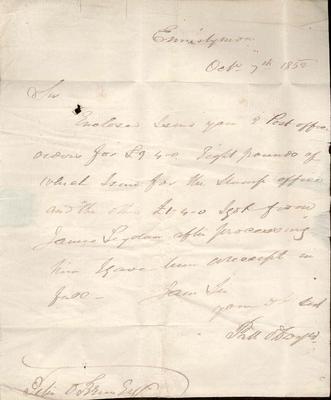 Ennistymon
Oct 7th 1850
Sir
Enclosed I send you 2 Post office
orders for £9 4-0 Eight pounds of
which I send for the Stamp office
and the other £1-4-0 I got from
James Leydon after processing
him I gave him a receipt in
full - I am Sir
your obt sert